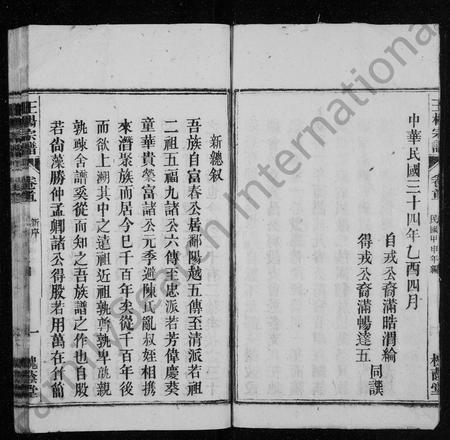 王楊宗譜
卷首
民國甲申年編
槐蔭堂
中華民國三十四年乙酉四月
自戎公裔滿晧渭綸
得戎公裔滿暢達五
同譔
新總叙
吾族自富春公居鄱陽越五傳至清派若祖
二祖五福九諸公六傳至忠派若芳偉慶葵
童華貴榮富諸公元季遇陳氏亂叔姪相携
來潛聚族而居今已千百年矣從千百年後
而欲上溯其中之遠祖近祖孰尊孰卑孰親
孰疎舍譜奚從而知之吾族譜之作也自殷
若尙藻勝仲孟卿諸公得殷若用萬在竹前
王楊宗譜
卷首
新序
一
槐蔭堂
FamilySearch International